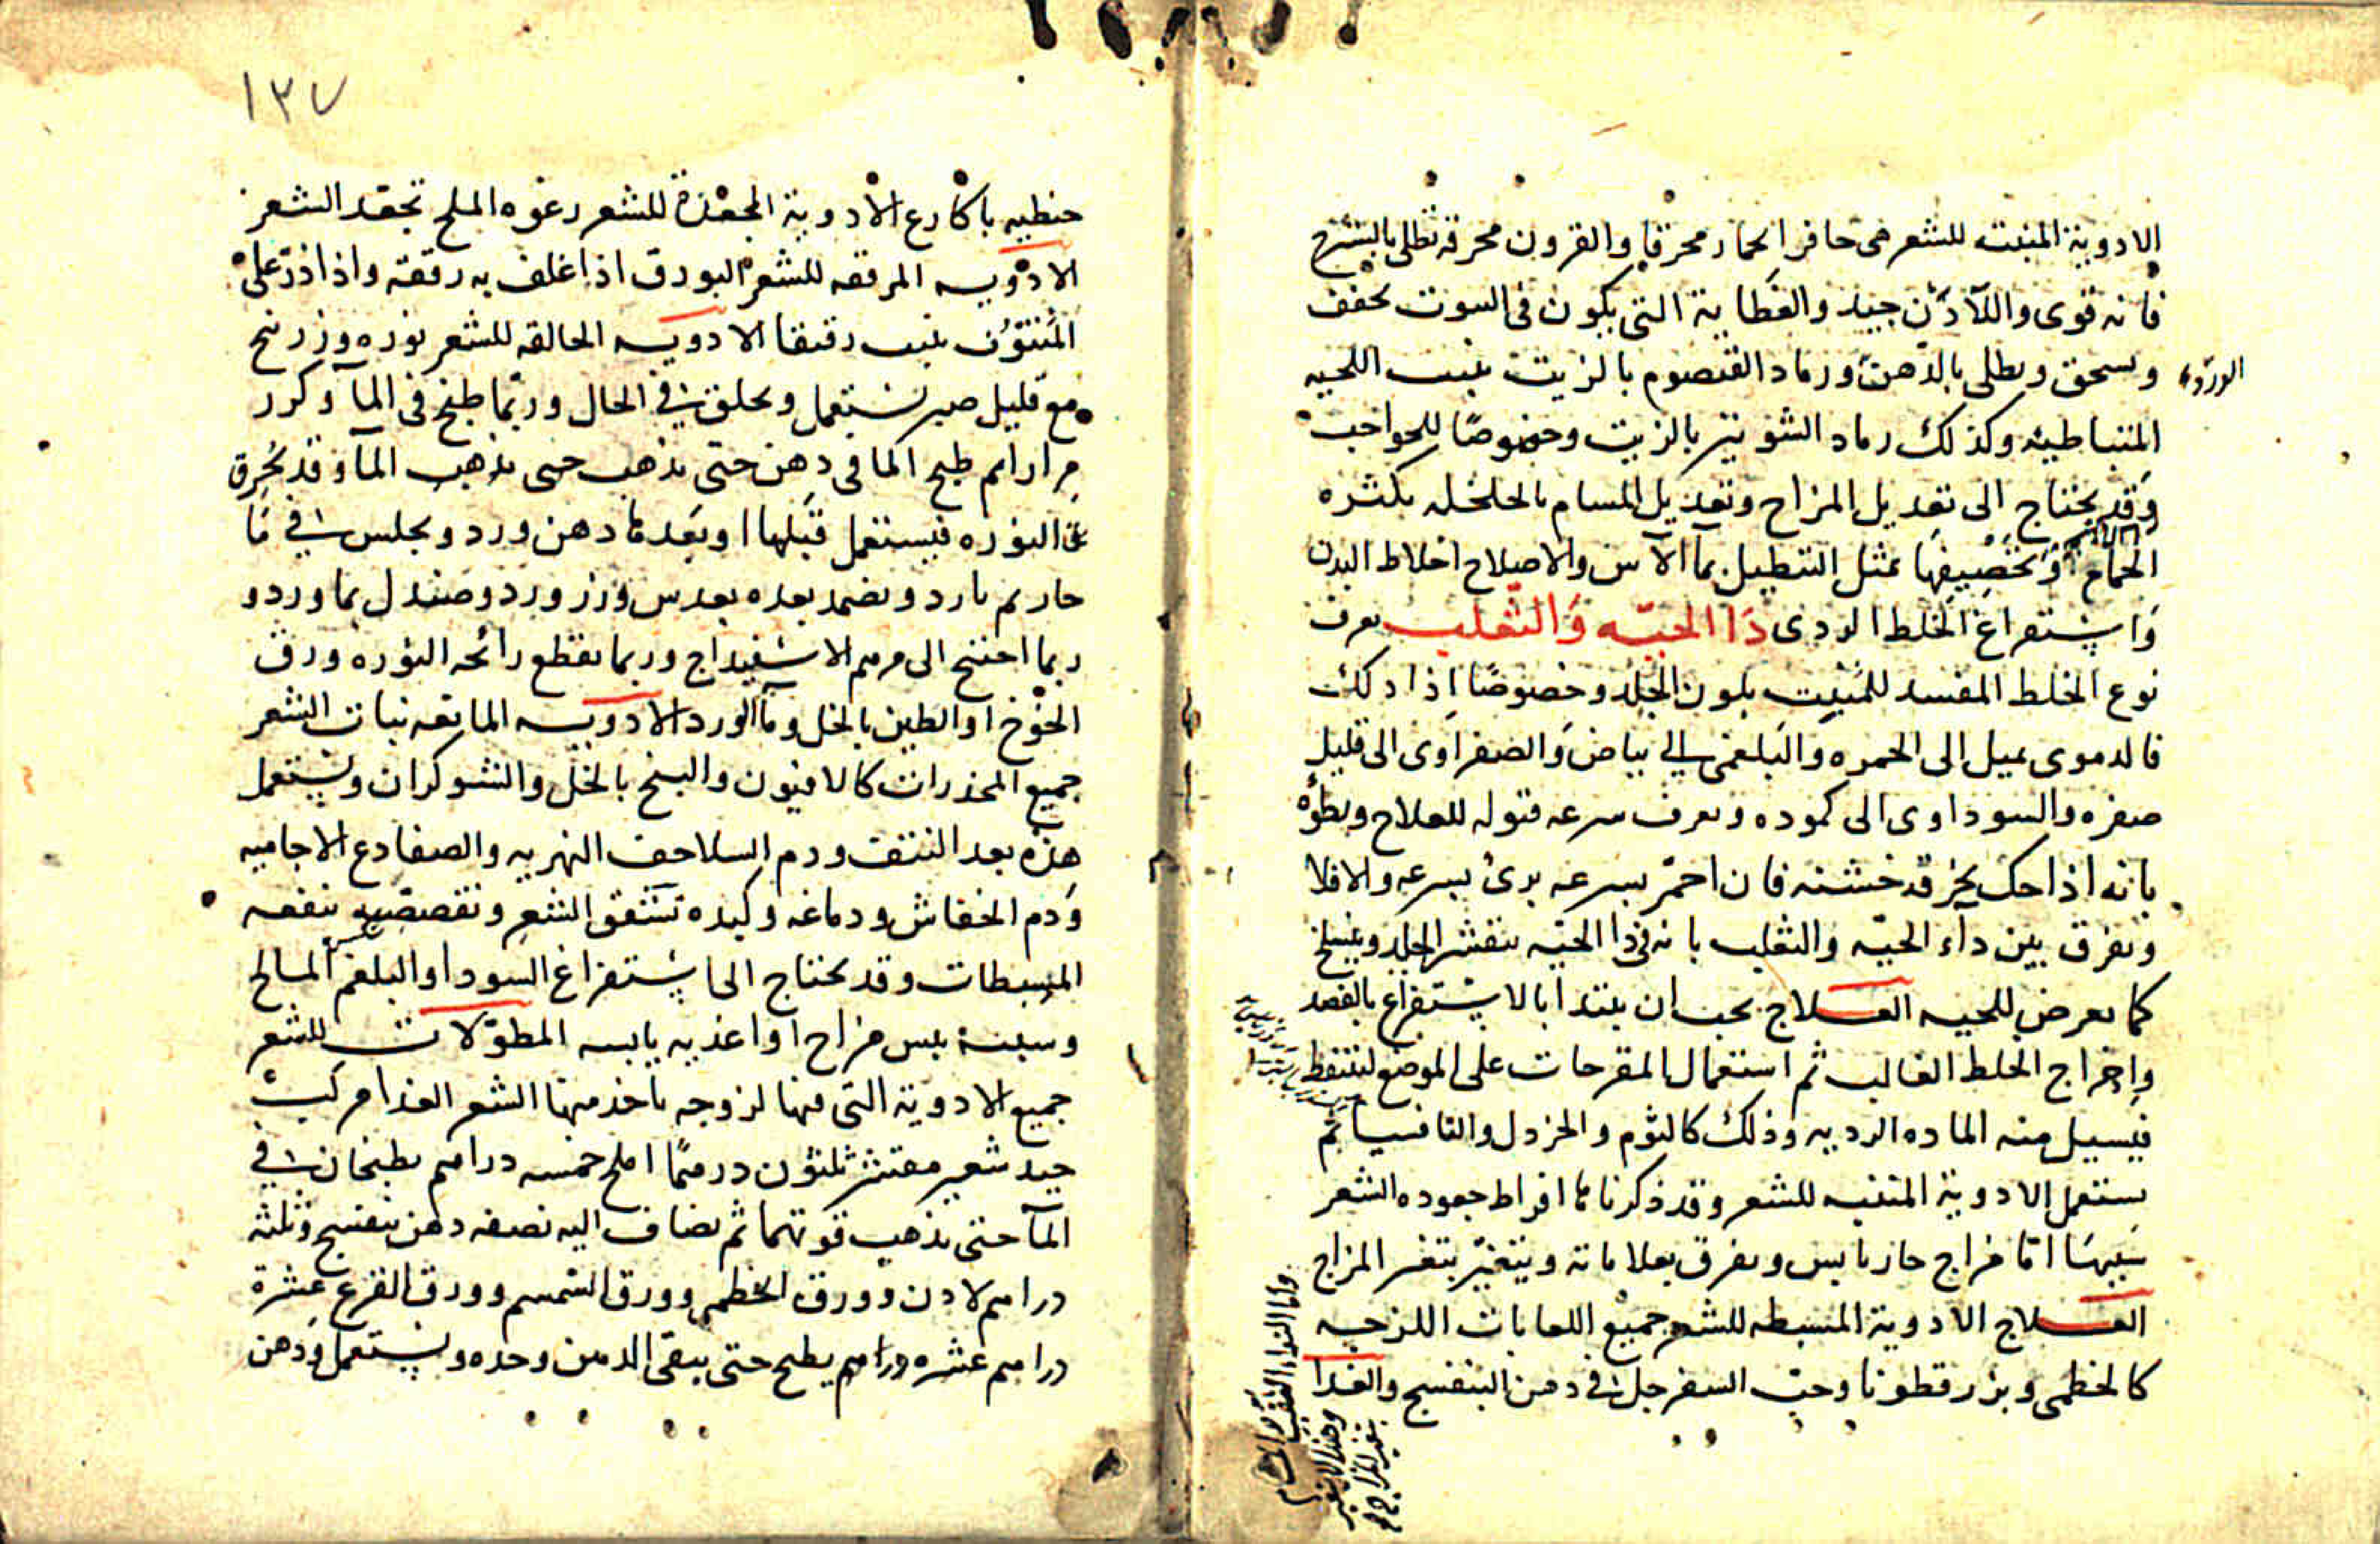 الادوية المنبته للشعر هى حافر الحمار محرقا والقرون محرقه تطلى بالشيرج
فانه قوى واللآدن جيد والعظاية التى يكون فى البيوت تجفف
وتسحق ويطلى بالدهن ورماد القيصوم بالزيت ينبت اللحيه
المتباطيه وكذلك رماد الشونيز بالزيت وخصوصًا للحواجب
وقد يحتاج الى تعديل المزاج وتعديل المسام بالخلخله بكثره
الحمام او تخصيفها بمثل التنطيل بمآ الآس والاصلاح اخلاط البدن
واستفراغ الخلط الردى دا الحيّه والثعلب يعرف
نوع الخلط المفسد للمنبت بلون الجلد وخصوصًا اذا دلك
فالدموى يميل الى الحمره والبلغمى الى بياض والصفراوى الى قليل
صفره والسوداوى الى كموده ويعرف سرعه قبوله للعلاج وبطؤه
بانه اذا حك بخرقه خشنه فان احمّر بسرعه برئ بسرعه والا فلا
ويفرق بين دآء الحيّه والثعلب بانه فى دا الحيّه يتقشر الجلد وينسلخ
كما يعرض للحيه العـلاج يجب ان يبتدا بالاستفراغ بالفصد
واخراج الخلط الغالب ثم استعمال المقرحات على الموضع ليتنفط
فيسيل منه الماده الرديه وذلك كالثوم والخردل والتافسيا ثم
يستعمل الادوية المنبته للشعر وقد ذكرناها افراط جعوده الشعر
سببها امّا مزاج حار يابس ويفرق بعلاماته ويتغيّر بتغير المزاج
العـلاج الادوية المسبطه للشعر جميع اللعابات اللزجه
كالخطمى وبزر قطونا وحبّ السفرجل فى دهن البنفسج والغدا
١٣٧
حنطيه باكارع الادوية المجعدة للشعر رغوه الملح تجعد الشعر
الادويه المرققه للشعر البورق اذا غلف به رققه واذا ذرّ على
المنتوف ينبت رقيقا الادويه الحالقه للشعر نوره وزرنيخ
مع قليل صبر يستعمل ويحلق فى الحال وربّما طبخ فى المآ وكرر
مرارا ثم طبخ الما فى دهن حتى يذهب حتى يذهب المآ وقد يُحرق
عن النوره فيستعمل قبلها او بعدها دهن ورد ويجلس فى مَا
حار ثم بارد ويضمد بعده بعدس وزر ورد وصندل بما ورد و
ربما احتيج الى مرهم الاسفيداج وربما يقطع رائحه النوره ورق
الخوخ او الطين بالخل ومآ الورد الادويه المانعه نبات الشعر
جميع المخدرات كالافيون والبنج بالخل والشوكران ويستعمل
هذه بعد النتف ودم السلاحف النهريه والضفادع الاجاميه
ودم الخفاش ودماغه وكبده تشقق الشعر وتقصصّه ينفعه
المسبطات وقد يحتاج الى استفراغ السودا والبلغم المالح
وسببه يبس مزاج او اغذيه يابسه المطوّلات للشعر
جميع الادوية التى فيها لزوجه ياخذ منها الشعر الغدا مركب
جيد شعير مقشر ثلثون درهمًا املج خمسه دراهم يطبخان فى
المآ حتى يذهب قوتهما ثم يضاف اليه نصفه دهن بنفسج وثلثه
دراهم لادن وورق الخطمى وورق السمسم وورق القرع عشرة
دراهم عشره دراهم يطبخ حتى يبقى الدهن وحده ويستعمل ودهن